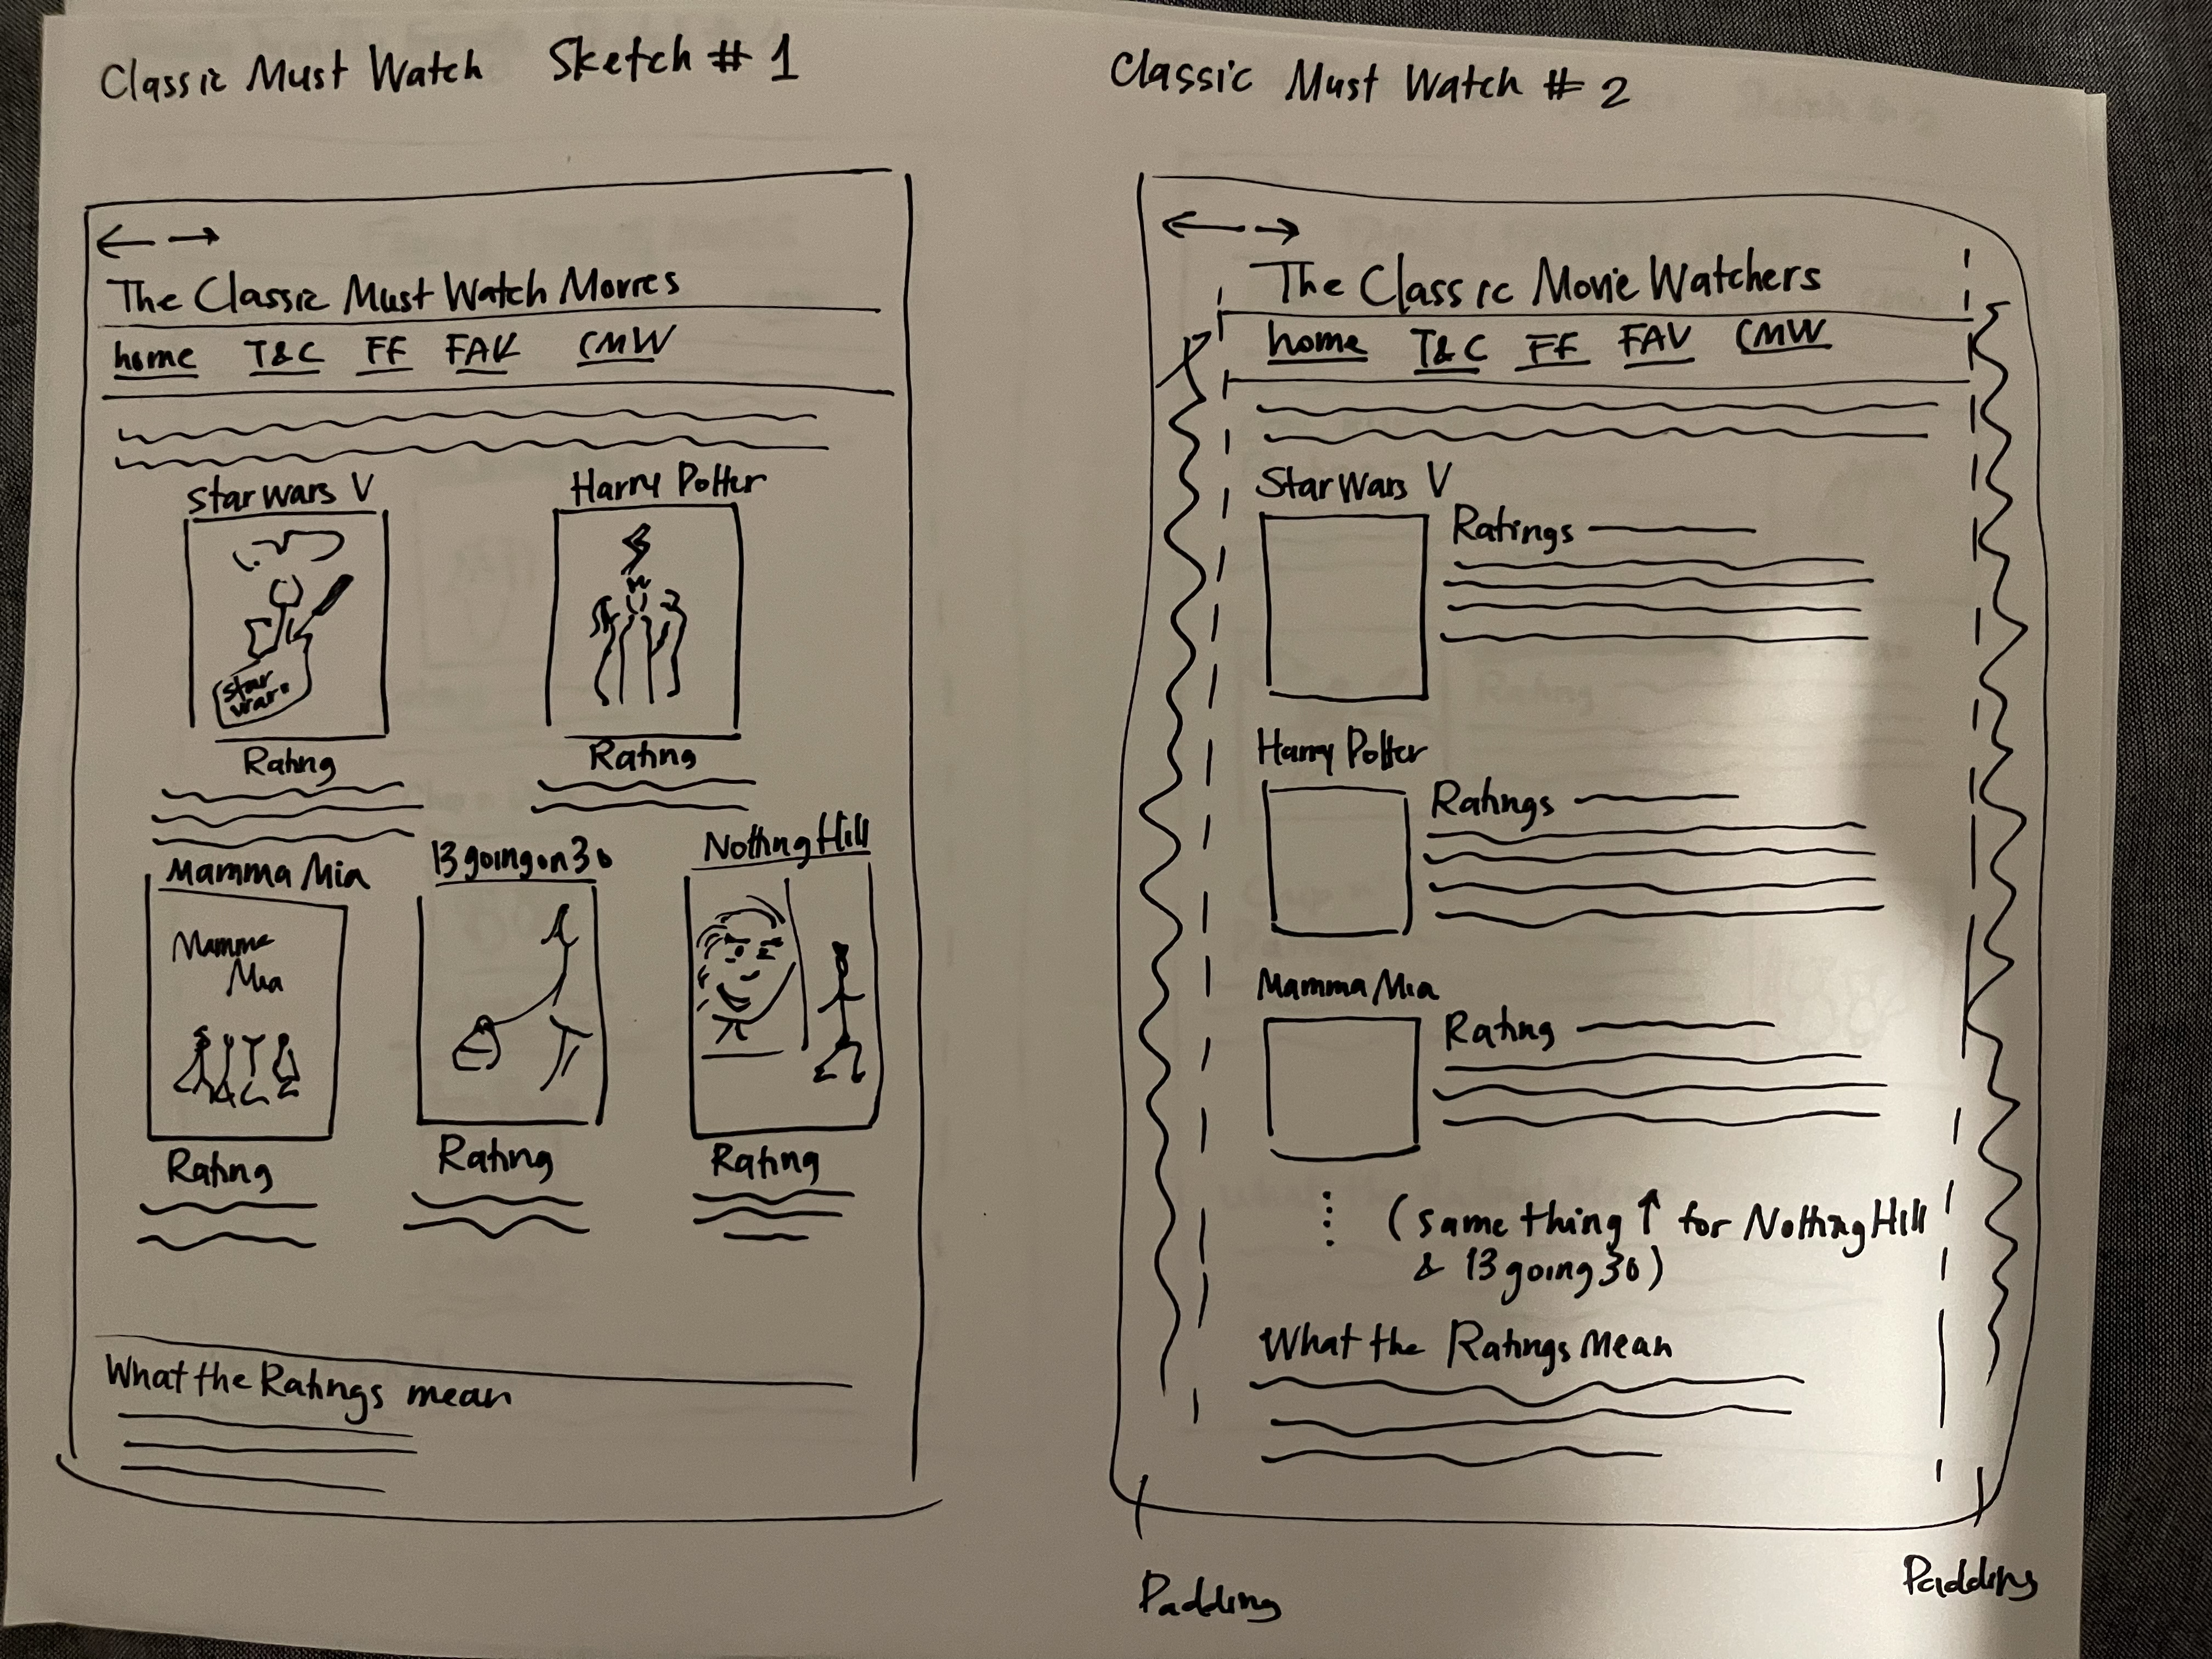 Classic Must Watch Sketch # 1
The Classic Must Watch Movies
home T&C FF FAV CMW
Star Wars V Harry Potter
Star
Wars
Rating Rating
Mamma Mia 13 going on 30 Notting Hill
Mamma
Mia
Rating Rating Rating
What the Ratings mean
Classic Must Watch # 2
The Classic Movie Watchers
home T&C FF FAV CMW
Star Wars V
Ratings
Harry Potter
Ratings
Mamma Mia
Rating
(same thing ↑ for Notting Hill
& 13 going 30)
What the Ratings Mean
Padding Padding